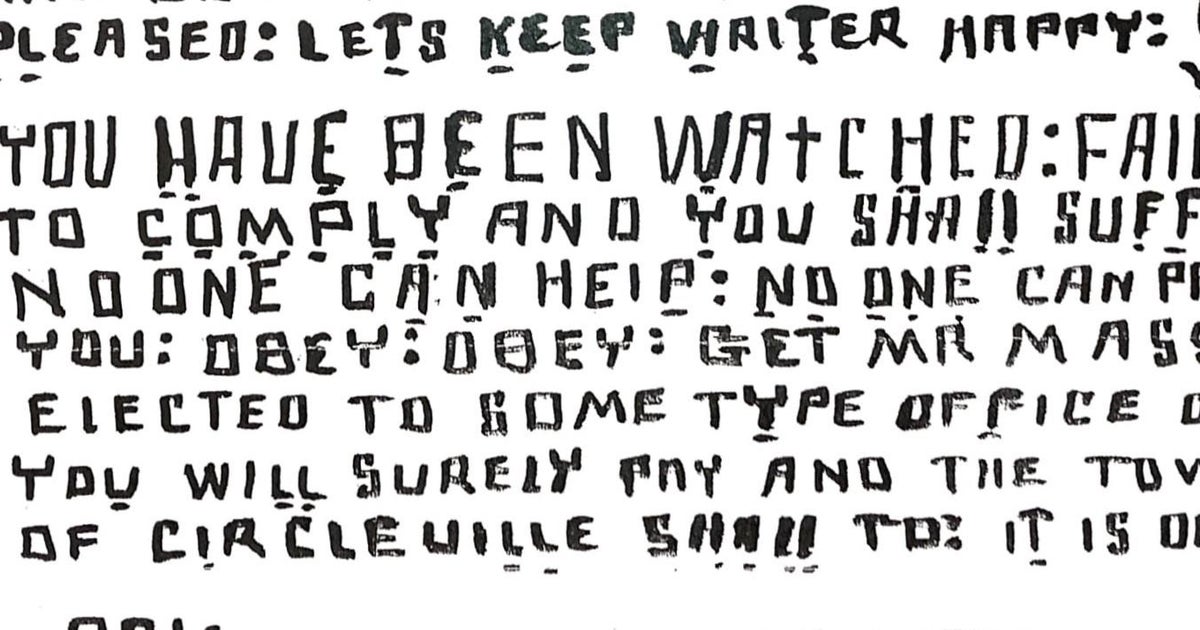 PLEASED: LETS KEEP WRITER HAPPY:
YOU HAVE BEEN WATCHED: FAI
TO COMPLY AND YOU SHAll SUFF
NO ONE CAN HElP: NO ONE CAN
YOU: OBEY: OBEY: GET MR MASS
ElECTED TO SOME TYPE OFFICE O
YOU WILL SURElY PAY AND THE TOW
OF CIRCLEVILLE SHAll TO: IT IS